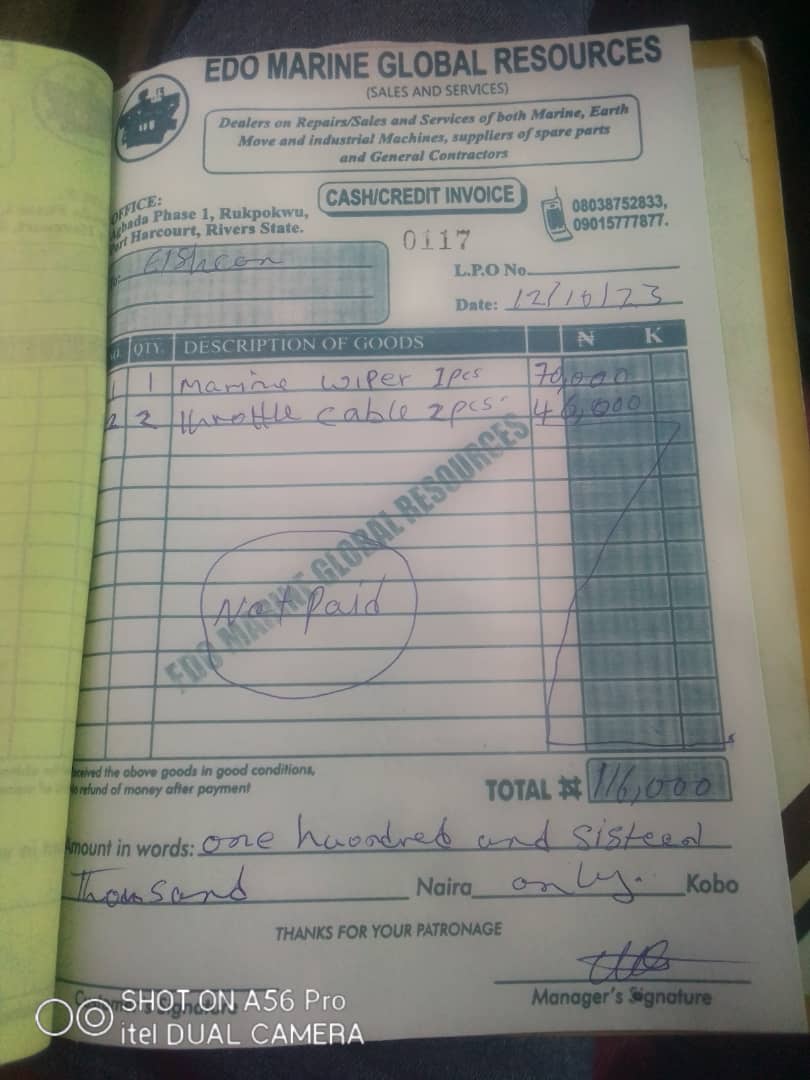 EDO MARINE GLOBAL RESOURCES
(SALES AND SERVICES)
Dealers on Repairs/Sales and Services of both Marine, Earth
Move and industrial Machines, suppliers of spare parts
and General Contractors
OFFICE:
Phase 1, Rukpokwu,
Port Harcourt, Rivers State.
CASH/CREDIT INVOICE
08038752833,
09015777877.
0117
L.P.O No.
Date: 12/10/23
QTY. DESCRIPTION OF GOODS ₦ K
1 1 Marine wiper 1pcs 70,000
2 2 throttle cable 2pcs 46,000
EDO MARINE GLOBAL RESOURCES
Not Paid
received the above goods in good conditions,
No refund of money after payment
TOTAL ₦ 116,000
Amount in words: one huondred and sisteen
Thousand Naira only. Kobo
THANKS FOR YOUR PATRONAGE
Customer's Signature
Manager's Signature
SHOT ON A56 Pro
itel DUAL CAMERA